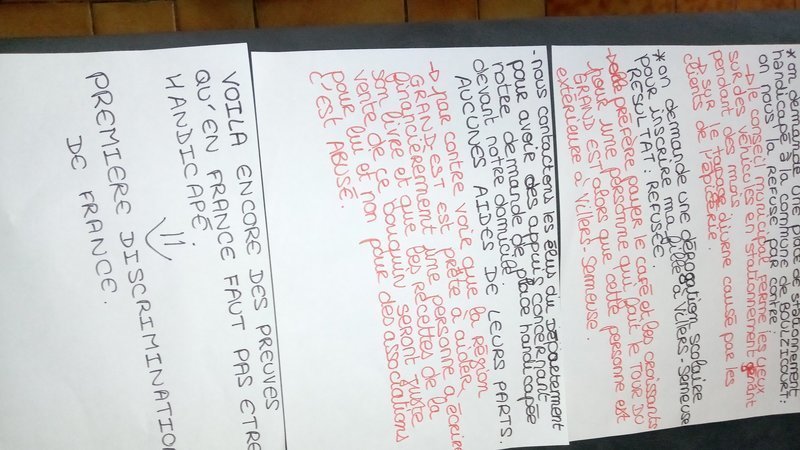 * on demande une place de stationnement
handicapée à la commune de BOULZICOURT:
on nous la REFUSE par contre:
→ le conseil municipal ferme les yeux
sur des véhicules en stationnement gênant
pendant des mois
→ sur le tapage diurne causé par les
clients de l'épicerie.
* on demande une dérogation scolaire
pour inscrire ma fille à Villers-Semeuse
RESULTAT: REFUSÉE.
→ préfère payer le café et les croissants
pour une personne qui fait le TOUR DU
GRAND EST alors que cette personne est
extérieure à Villers-Semeuse.
- nous contactons les élus du Département
pour avoir des appuis concernant
notre demande de place handicapée
devant notre domicile
AUCUNES AIDES DE LEURS PARTS.
→ par contre voir que la région
GRAND EST est prête à aider
financièrement une personne à écrire
son livre et que les récoltes de la
vente de ce bouquin seront juste
pour lui et non pour des associations
C'est ABUSÉ.
VOILA ENCORE DES PREUVES
QU'EN FRANCE FAUT PAS ETRE
HANDICAPÉ.
PREMIERE DISCRIMINATION
DE FRANCE.